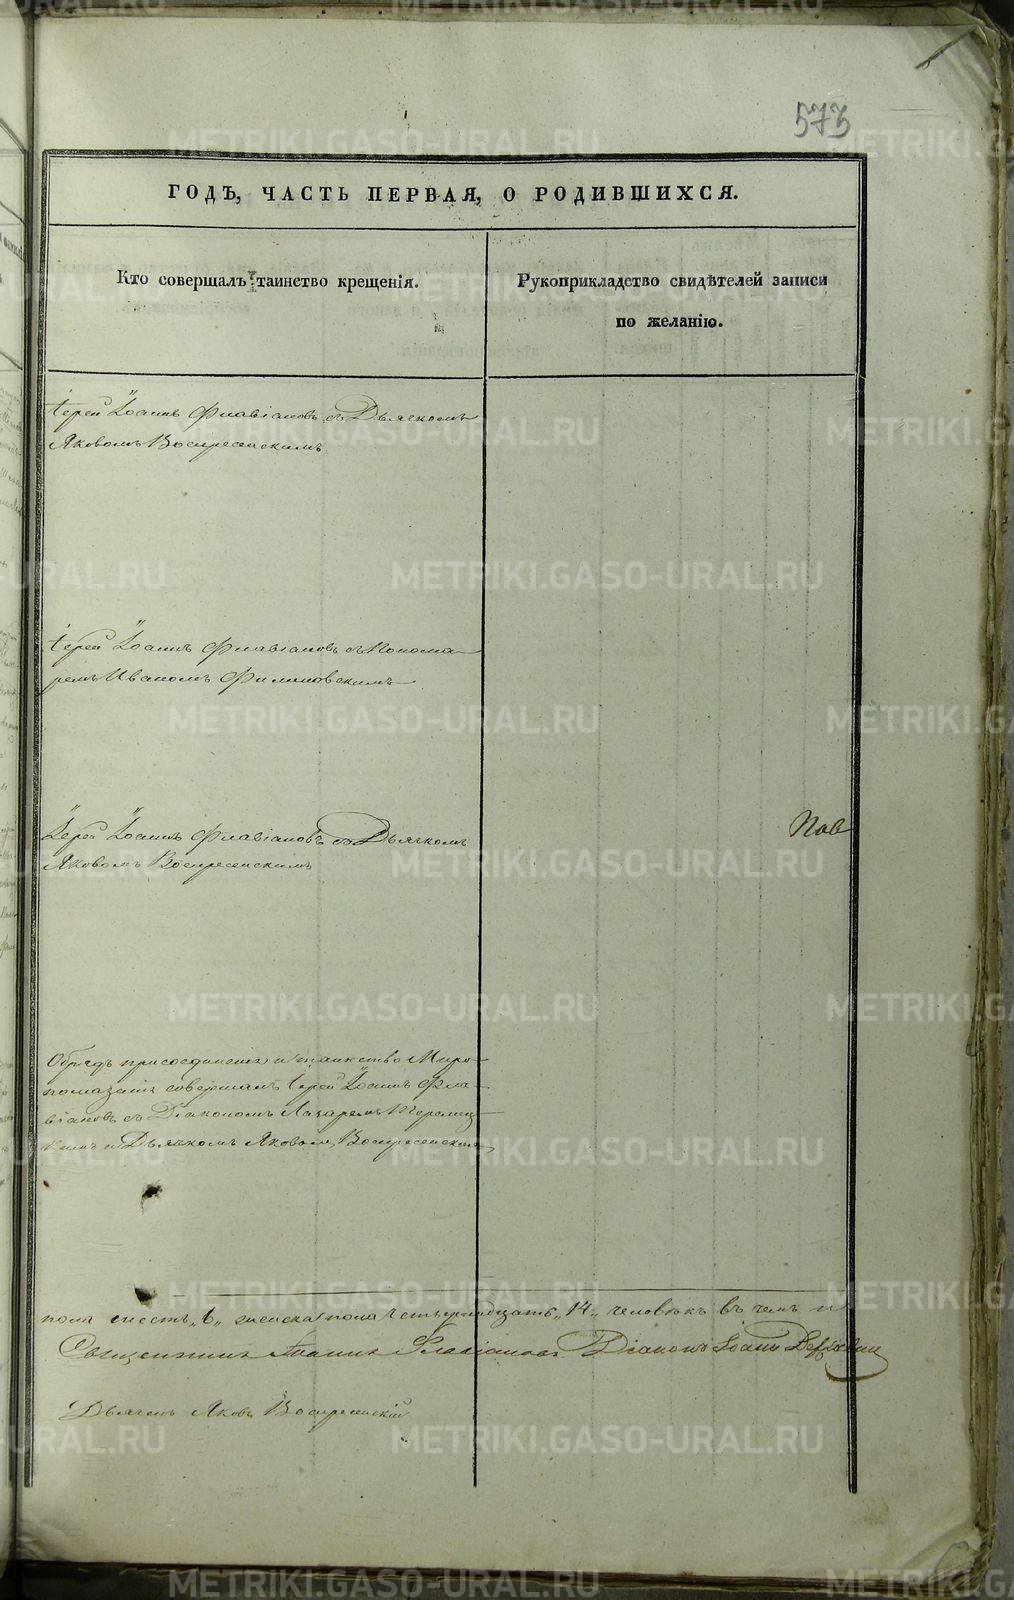 573
ГОДЪ, ЧАСТЬ ПЕРВАЯ, О РОДИВШИХСЯ.
Кто совершалъ таинство крещенія.
Рукоприкладство свидѣтелей записи
по желанію.
Іерей Іоаннъ Флавіановъ съ Дьячкомъ
Яковомъ Воскресенскимъ
Іерей Іоаннъ Флавіановъ съ Понома-
ремъ Иваномъ
Іерей Іоаннъ Флавіановъ съ Дьячкомъ
Яковомъ Воскресенскимъ
Обрядъ присоединенія и таинство Мѵро-
помазанія совершалъ Іерей Іоаннъ Фла-
віановъ съ Діакономъ Лазаремъ
и Дьячкомъ Яковомъ Воскресенским
пола шесть „6„ женска пола четырнадцать „14„ человѣкъ въ чемъ и
Священникъ Іоаннъ Флавіановъ Діаконъ Іоаннъ
Дьячекъ Яковъ Воскресенскій
METRIKI.GASO-URAL.RU